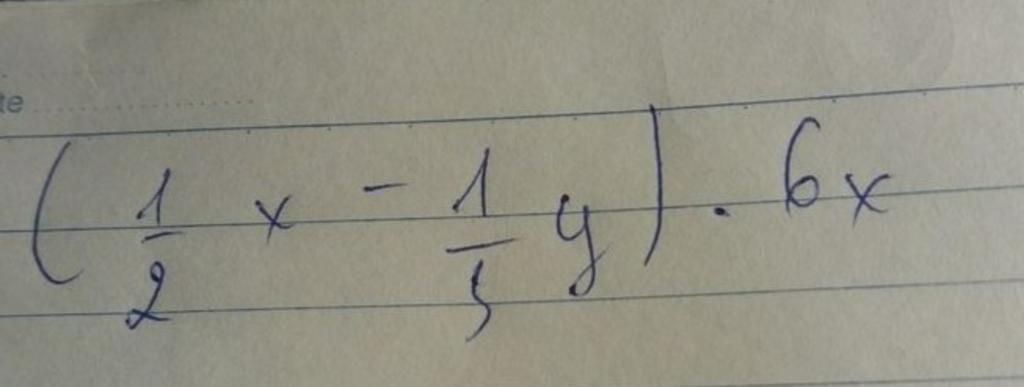 te
(1/2 x - 1/3 y) . 6x